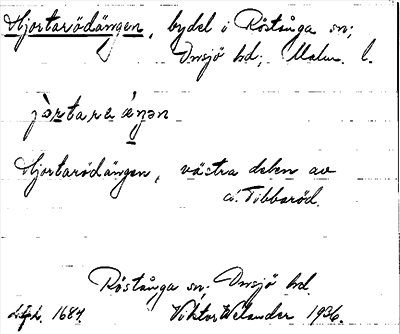 Hjortarödängen, bydel i Röstånga sn;
Onsjö hd; Malm. l.
jòrtarɛ áŋən
Hjortarödängen, västra delen av
ä. Tibbaröd.
Röstånga sn. Onsjö hd
1684 Viktor Welander 1936.